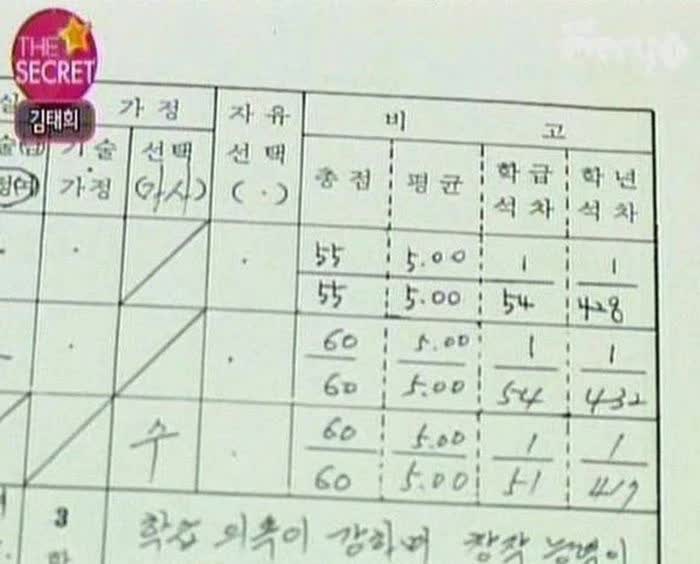 THE
SECRET
김태희
실 가 정 자 유 비 고
기 술 선 택 선 택 총 점 평 균 학 급 학 년
가 정 (가사) ( · ) 석 차 석 차
55 5.00 1 1
55 5.00 54 428
60 5.00 1 1
60 5.00 54 432
수 60 5.00 1 1
60 5.00 51 417
3 학습 의욕이 강하며 창작 능력이
학